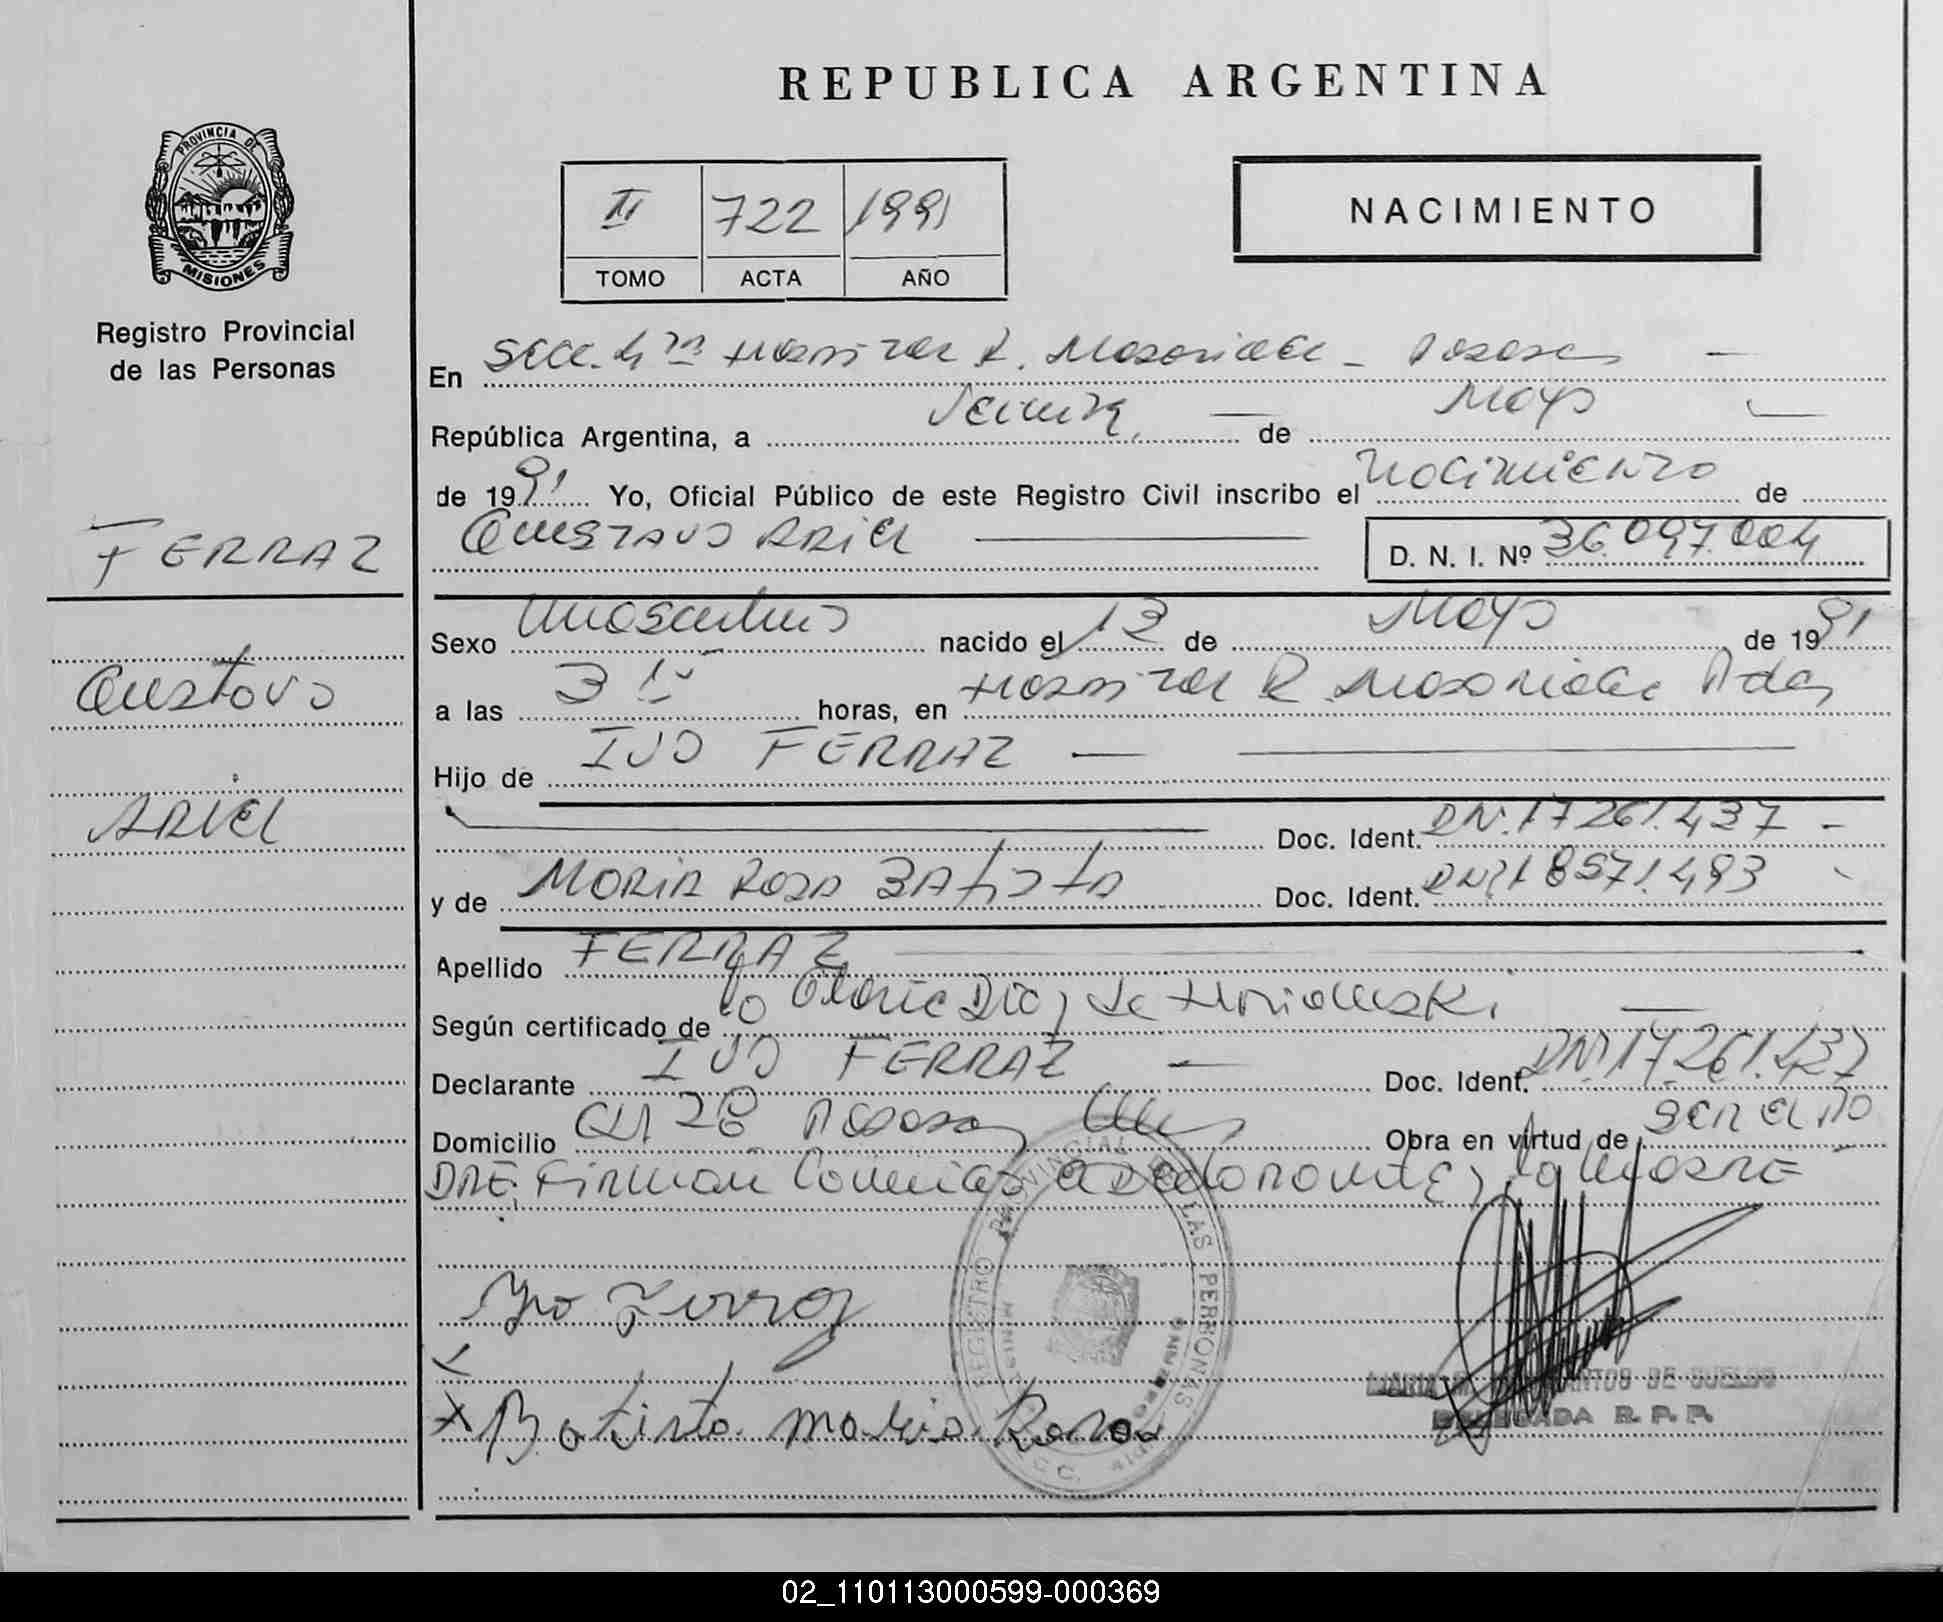 REPUBLICA ARGENTINA
PROVINCIA DE
MISIONES
Registro Provincial
de las Personas
II 722 1991
TOMO ACTA AÑO
NACIMIENTO
En Secc. 4ta Hospital R. Madariaga - Posadas
República Argentina, a Veinte de Mayo
de 1991 Yo, Oficial Público de este Registro Civil inscribo el Nacimiento de
Gustavo Ariel D. N. I. Nº 36.097.004
FERRAZ
Sexo Masculino nacido el 13 de Mayo de 1991
Gustavo
a las 3 horas, en Hospital R. Madariaga Pdas
Hijo de IVO FERRAZ
Ariel
Doc. Ident. DNI. 17.261.437 -
y de Maria Rosa Batista Doc. Ident. DNI 18.571.493
Apellido FERRAZ
Según certificado de Diaz de
Declarante IVO FERRAZ Doc. Ident. DNI 17.261.437
Domicilio Ch 28 Posadas Mnes Obra en virtud de ser el pa
dre. Firman conmigo el declarante y la madre
REGISTRO PROVINCIAL DE LAS PERSONAS
Ivo Ferraz
X Batista Maria Rosa
DE SUELDO
DELEGADA R. P. P.
02_110113000599-000369